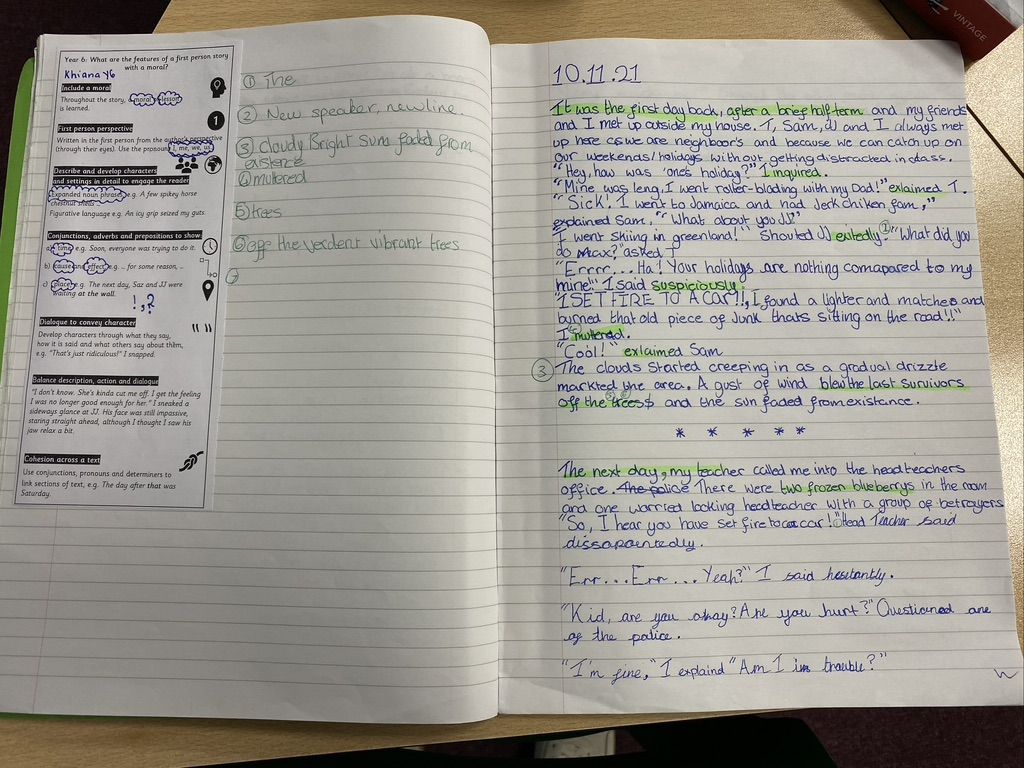 VINTAGE
Year 6: What are the features of a first person story
with a moral?
Khiana Y6
Include a moral
Throughout the story, a moral lesson
is learned.
First person perspective
Written in the first person from the author's perspective
(through their eyes). Use the pronouns I, me, we, us
Describe and develop characters
and settings in detail to engage the reader
Expanded noun phrases e.g. A few spikey horse
chestnut shells
Figurative language e.g. An icy grip seized my guts.
Conjunctions, adverbs and prepositions to show:
a) time e.g. Soon, everyone was trying to do it.
b) cause and effect e.g. … for some reason, …
c) place e.g. The next day, Saz and JJ were
waiting at the wall.
! , ?
Dialogue to convey character
Develop characters through what they say,
how it is said and what others say about them,
e.g. "That's just ridiculous!" I snapped.
Balance description, action and dialogue
"I don't know. She's kinda cut me off. I get the feeling
I was no longer good enough for her." I sneaked a
sideways glance at JJ. His face was still impassive,
staring straight ahead, although I thought I saw his
jaw relax a bit.
Cohesion across a text
Use conjunctions, pronouns and determiners to
link sections of text, e.g. The day after that was
Saturday.
① The
② New speaker, new line.
③ cloudy Bright sun faded from
existence
④ muttered
⑤ trees
⑥ off the verdent vibrant trees
⑦
10.11.21
It was the first day back, after a brief half term and my friends
and I met up outside my house. T, Sam, JJ and I always met
up here as we are neighboor's and because we can catch up on
our weekends/holidays without getting distracted in class.
"Hey, how was 'ones holiday?" I inquired.
"Mine was leng, I went roller-blading with my Dad!" exlaimed T.
"Sick! I went to Jamaica and had Jerk chiken fam,"
explained Sam. "What about you JJ?"
I went skiing in greenland!" Shouted JJ exitedly. ① "What did you
do Max?" asked T
"Errrr...Ha! Your holidays are nothing comapared to my
mine!" I said suspiciously.
"I SET FIRE TO A CAR!!, I found a lighter and matches and
burned that old piece of Junk thats sitting on the road!!"
I muttered.
"Cool!" exlaimed Sam
③ The clouds started creeping in as a gradual drizzle
markted the area. A gust of wind blew the last survivors
off the trees and the sun faded from existance.
* * * * *
The next day, my teacher called me into the headteachers
office. The police There were two frozen blueberrys in the room
and one worried looking headteacher with a group of betrayers
"So, I hear you have set fire to a car!" Head Teacher said
dissapointedly.
"Err...Err...Yeah?" I said hesitantly.
"Kid, are you okay? Are you hurt?" Questioned one
of the police.
"I'm fine," I explaind "Am I in trouble?"